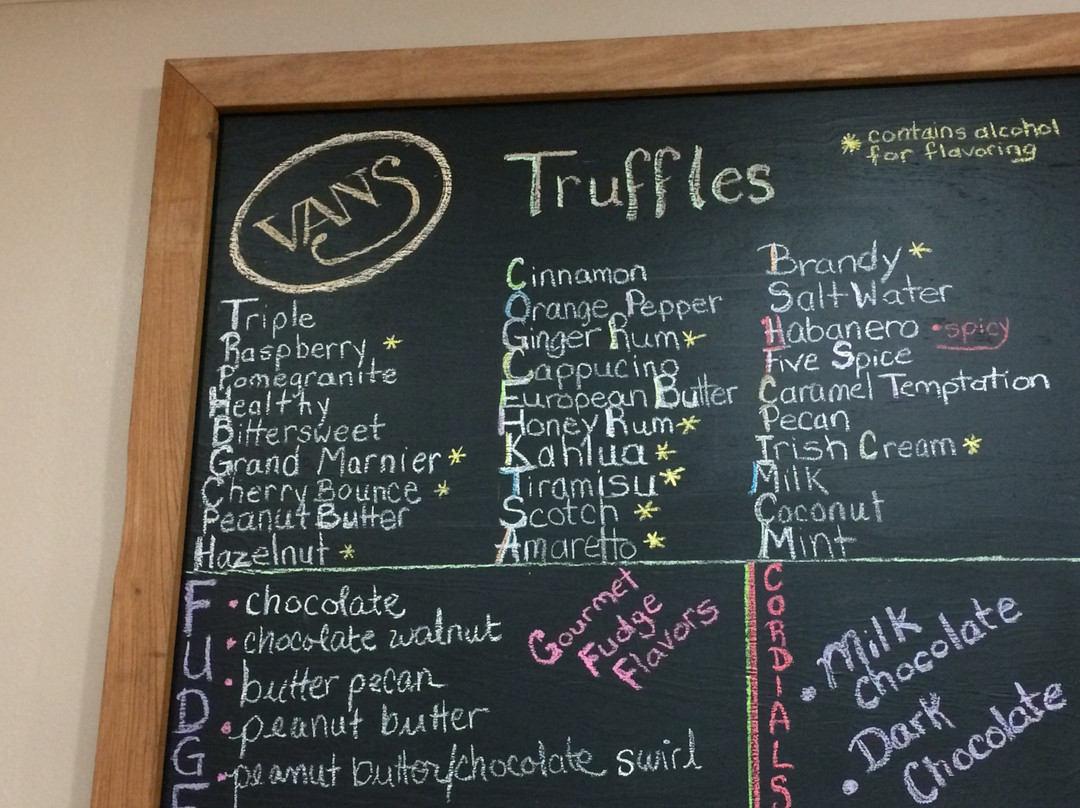 VANS
Truffles
* contains alcohol
for flavoring
Triple
Raspberry *
Pomegranite
Healthy
Bittersweet
Grand Marnier *
Cherry Bounce *
Peanut Butter
Hazelnut *
Cinnamon
Orange Pepper
Ginger Rum *
Cappucino
European Butter
Honey Rum *
Kahlua *
Tiramisu *
Scotch *
Amaretto *
Brandy *
Salt Water
Habanero • spicy
Five Spice
Caramel Temptation
Pecan
Irish Cream *
Milk
Coconut
Mint
FUDGE
• chocolate
• chocolate walnut
• butter pecan
• peanut butter
• peanut butter/chocolate swirl
Gourmet
Fudge
Flavors
CORDIALS
• Milk
chocolate
• Dark
Chocolate